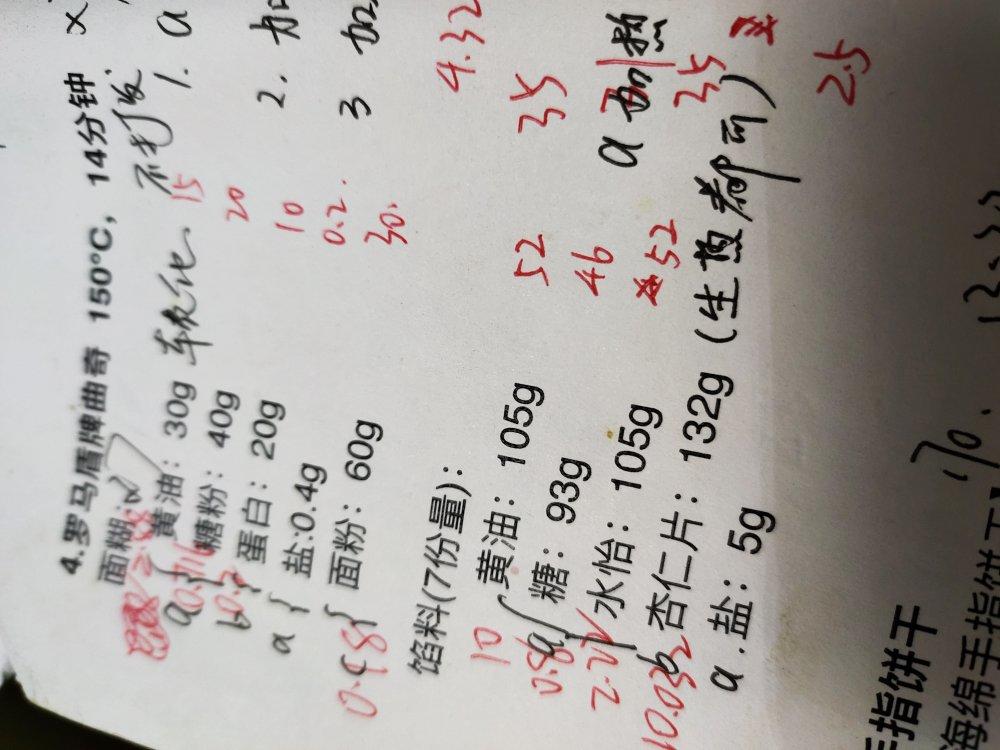 4.罗马盾牌曲奇 150°C，14分钟
面糊: 不打发 1. a
a 黄油：30g 软化 15
b 糖粉：40g 20 2. 加
蛋白：20g 10
a 盐:0.4g 0.2 3 加
0.48 面粉：60g 30.
馅料(7份量)： 4.32
10 a 黄油：105g 52 35
糖：93g 46
2. 水怡：105g 52 a 加热 35
10.032 b 杏仁片：132g (生熟都可)
a. 盐：5g 2.5
手指饼干
海绵手指饼干